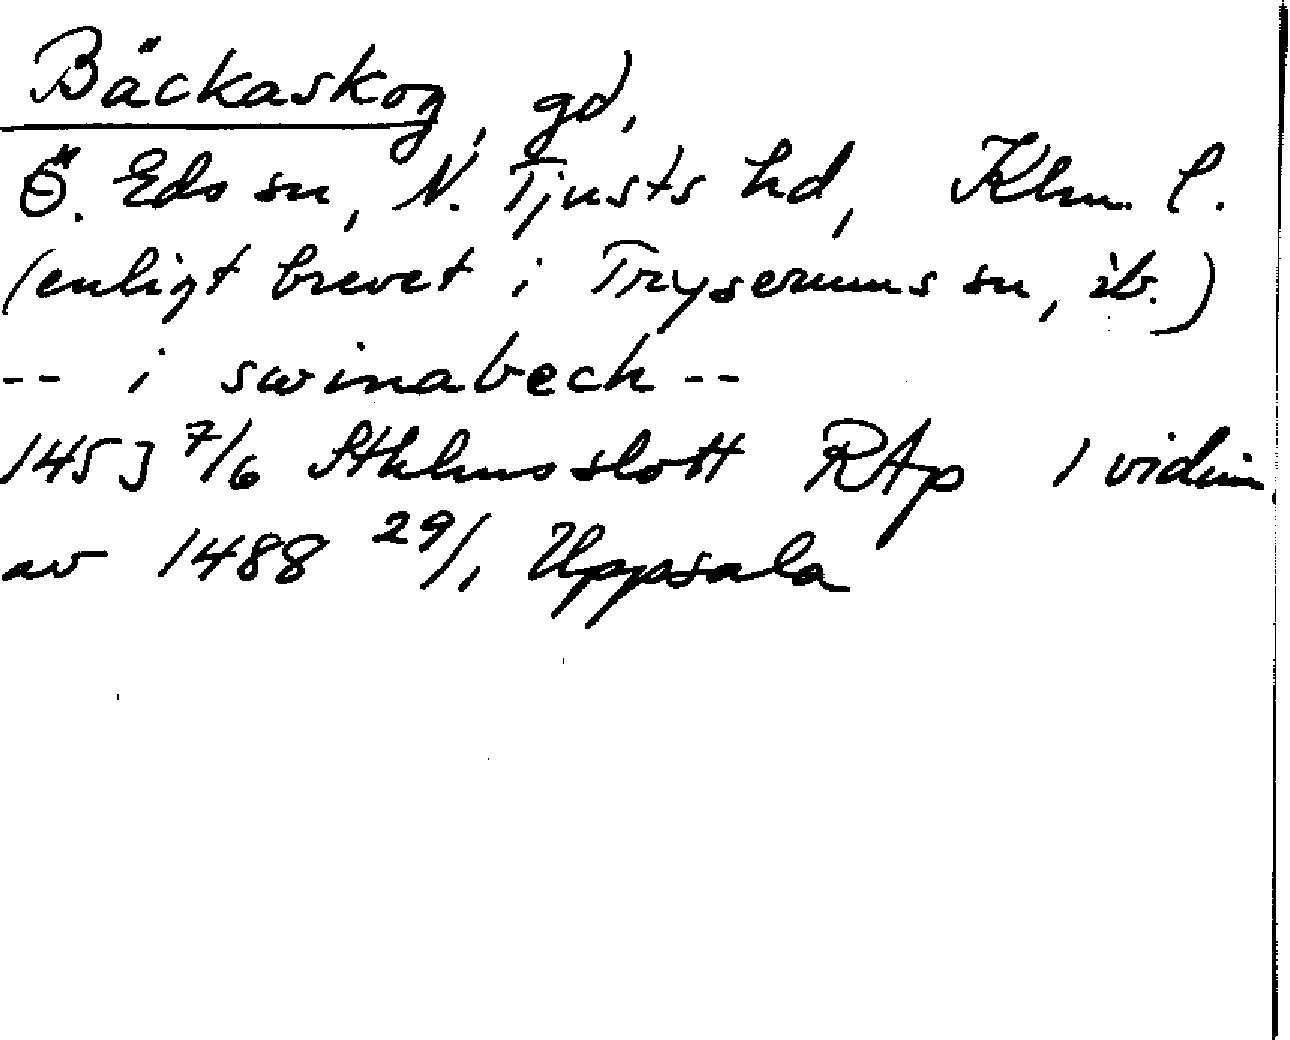 Bäckaskog, gd,
Ö. Eds sn, N. Tjusts hd, Klm. l.
(enligt brevet i Tryserums sn, ib.)
-- i swinabeck --
1453 7/6 Sthlms slott RAp 1 vidim.
av 1488 29/1 Uppsala